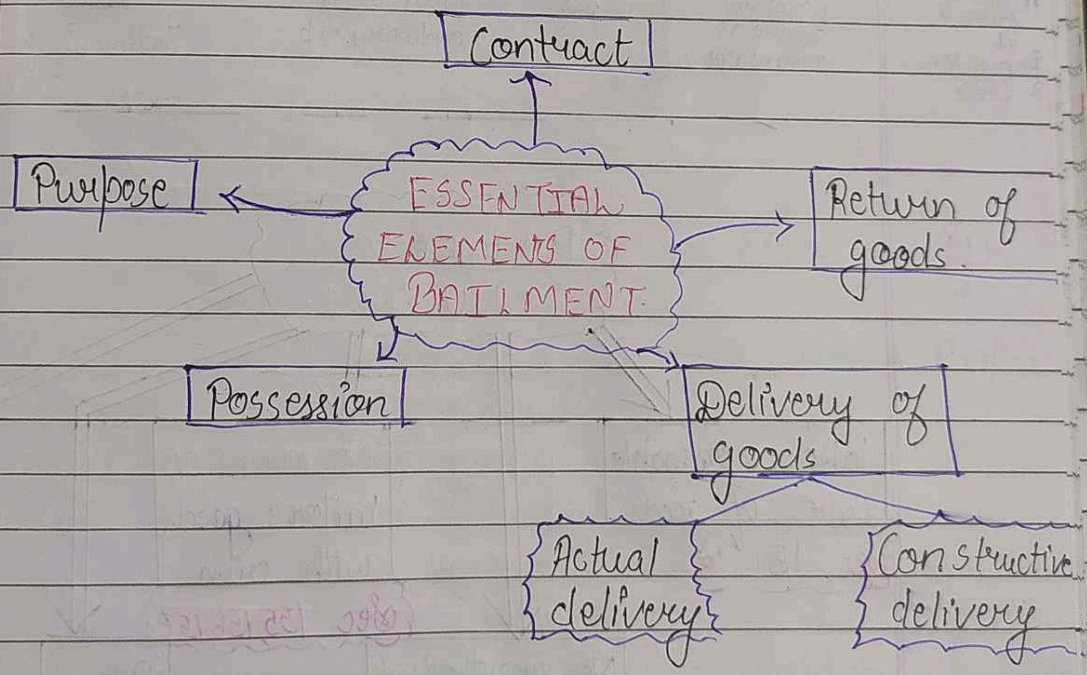 Contract
Purpose
ESSENTIAL
ELEMENTS OF
BAILMENT.
Return of
goods.
Possession
Delivery of
goods
Actual
delivery
Constructive
delivery